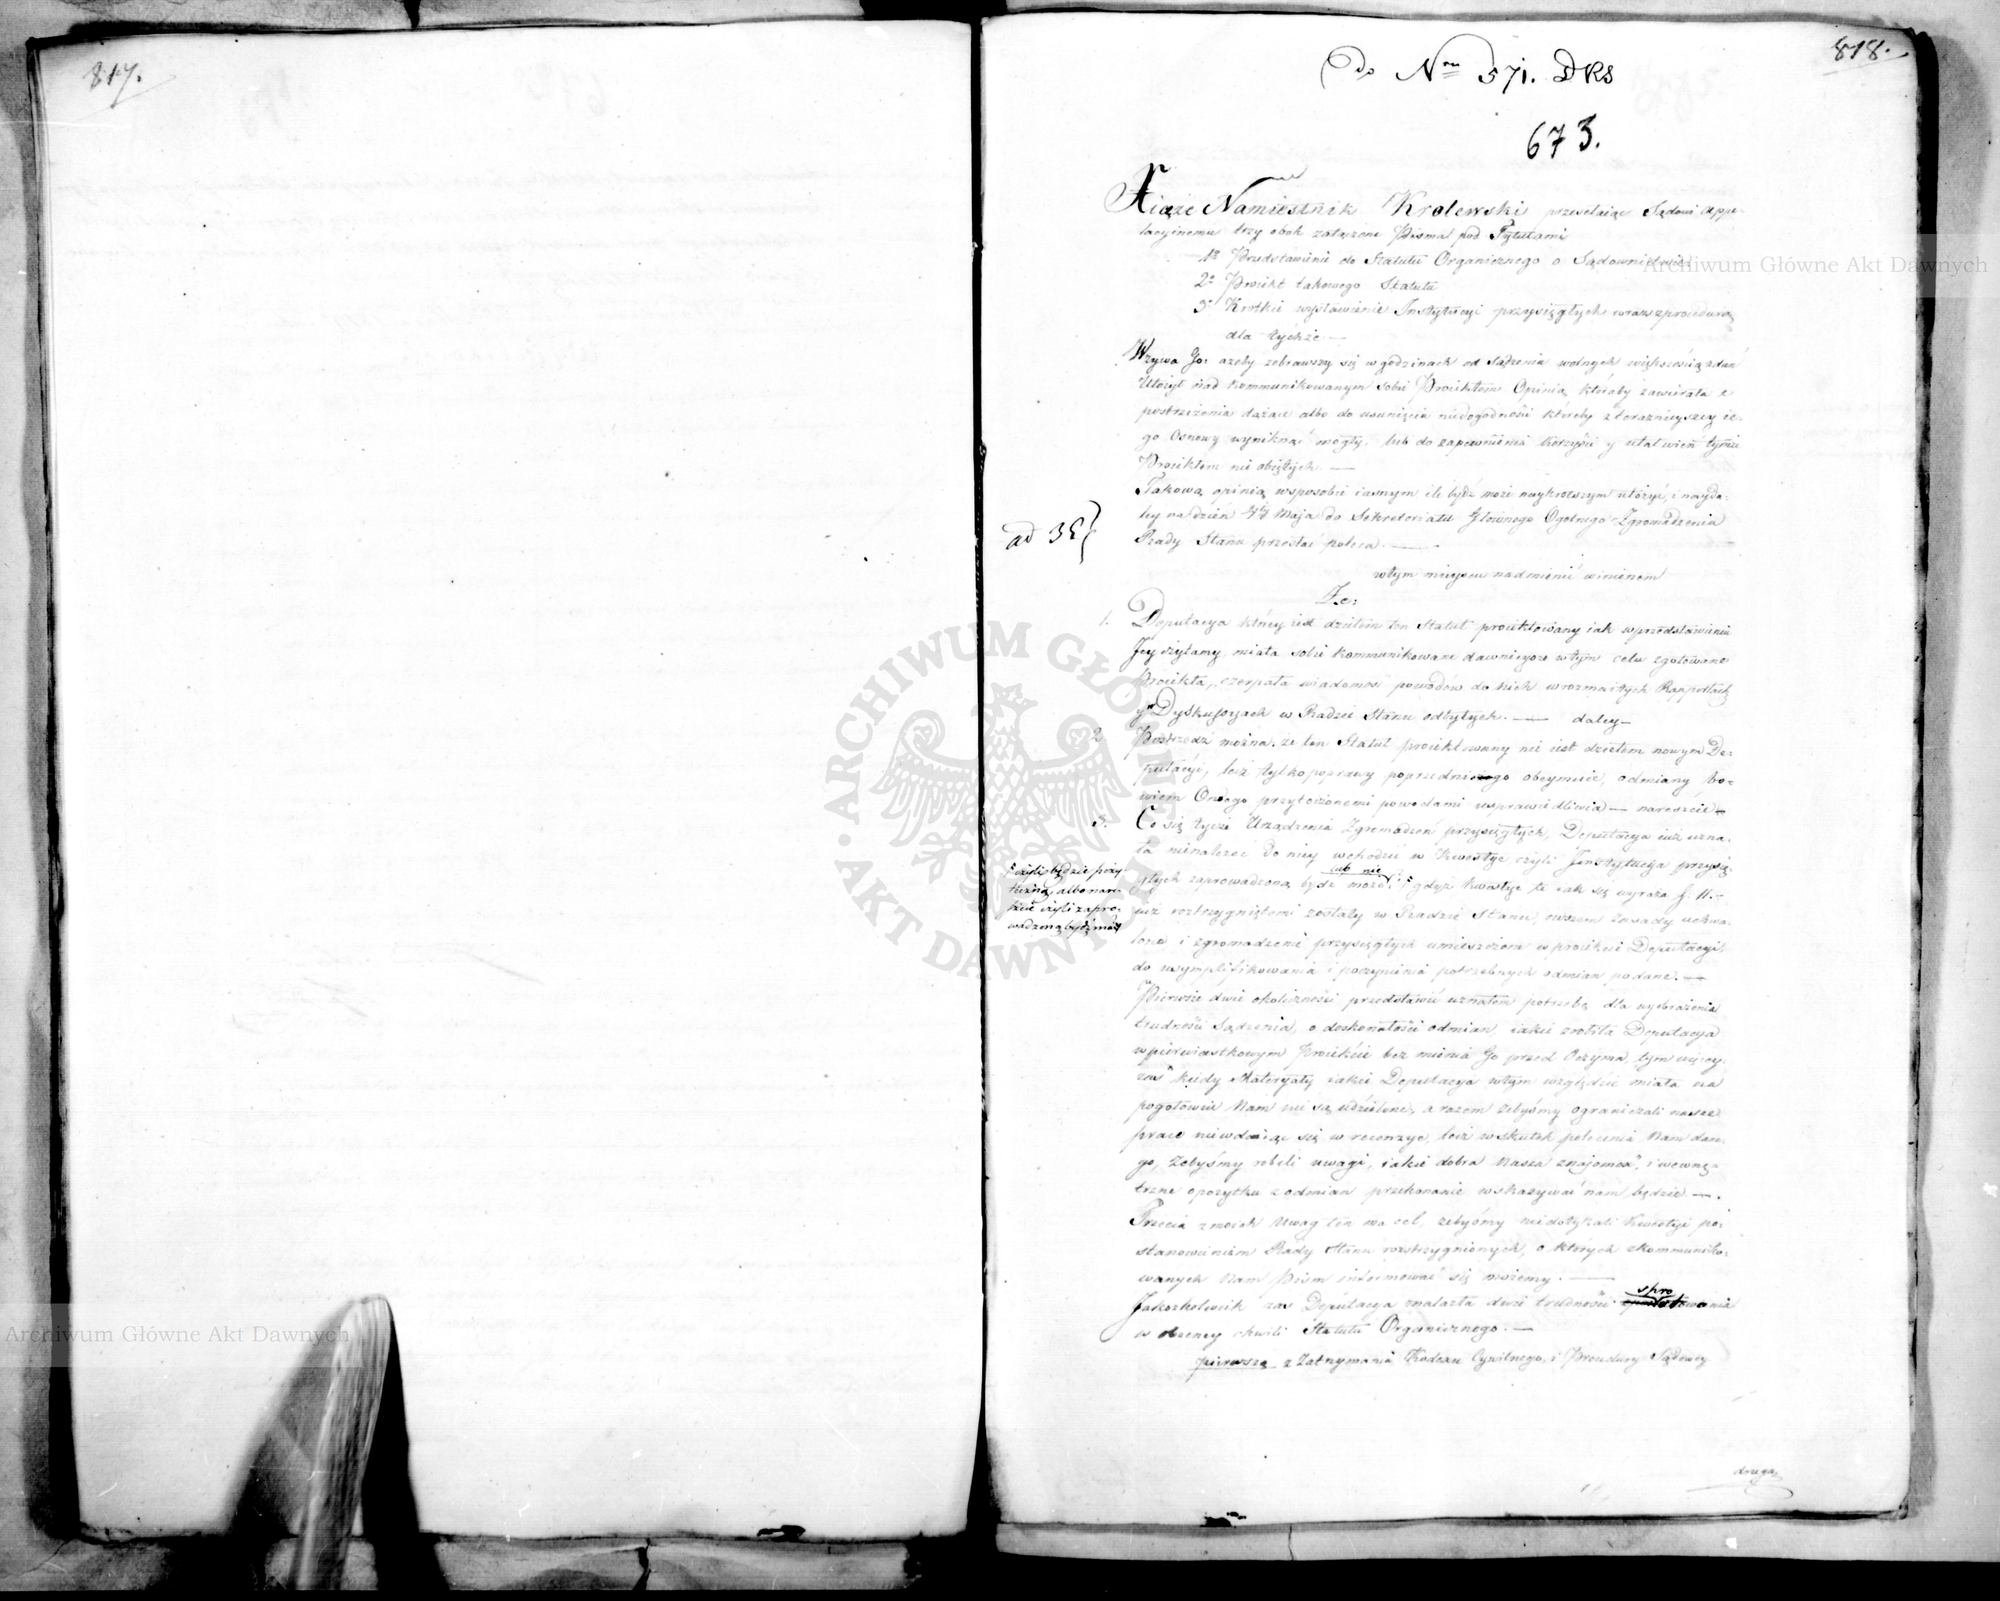 817.
818.
do Nru 571. DRS
673.
Xiąże Namiestnik Krolewski przesełaiąc Sądowi Appe-
lacyinemu trzy obok załączone Pisma pod Tytułami
1o Przedstawienie do Statutu Organicznego o Sądownictwie
2o Proiekt takowego Statutu
3o Krotkie wystawienie Instytucyi przysięgłych wraz z procedurą
dla tychże —
Wzywa Go: ażeby zebrawszy się w godzinach od Sądzenia wolnych większością zdań
Ułożył nad kommunikowanym sobie Proiektem Opinią, któraby zawierała
postrzeżenia dążące albo do usunięcia niedogodności któreby z teraznieyszey ie-
go Osnowy wyniknąć mogły, lub do zapewnienia korzyści y ułatwień tymże
Proiektem nie obiętych. —
Takową opinią w sposobie iasnym ile bydź może naykrotszym ułożyć, i nayda-
ley na dzień Maja do Sekretariatu Głównego Ogolnego Zgromadzenia
Rady Stanu przesłać poleca. —
ad 3C
w tym mieyscu nadmienić winienem
Że:
1. Deputacya którey iest dziełem ten Statut proiektowany iak w przedstawieniu
Jey czytamy, miała sobie kommunikowane dawnieysze w tym celu zgotowane
Proiekta, czerpała wiadomość powodów do nich w rozmaitych Rapportach
y Dyskussyach w Radzie Stanu odbytych. — daley —
2. Postrzedz można, że ten Statut proiektowany nie iest dziełem nowym De-
putacyi, lecz tylko poprawy poprzedniego obeymuie, odmiany bo-
wiem Onego przytoczonemi powodami usprawiedliwia — nareszcie
3. Co się tycze Urządzenia Zgromadzeń przysięgłych, Deputacya iuż uzna-
ła nienależeć do niey wchodzić w kwestye czyli Instytucya przysię-
głych zaprowadzona bydź może lub nie, gdyż kwestye te iak się wyraża f. 11. —
czyli będzie poży-
teczną, albo nare-
szcie czyli zapro-
wadzoną bydź ma
iuż rozstrzygniętemi zostały w Radzie Stanu, owszem zasady uchwa-
lone i zgromadzenie przysięgłych umieszczone w proiekcie Deputacyi,
do usymplifikowania i poczynienia potrzebnych odmian podane. —
Pierwsze dwie okoliczności przedstawić uznałem potrzebę dla wyobrażenia
trudności Sądzenia, o doskonałości odmian iakie zrobiła Deputacya
w pierwiastkowym Proiekcie bez mienia Go przed Oczyma, tym więcey
zaś kiedy Materyały iakie Deputacya w tym względzie miała na
pogotowiu Nam nie są udzielone, a razem żebyśmy ograniczali nasze
prace niewdaiąc się w recenzye, lecz w skutek polecenia Nam dane-
go, żebyśmy robili uwagi, iakie dobra Nasza znajomość, i wewnę-
trzne o pożytku z odmian przekonanie wskazywać nam będzie —.
Trzecia z moich Uwag ten ma cel, żebyśmy niedotykali kwestyi po-
stanowieniem Rady Stanu rozstrzygnionych, o których z kommuniko-
wanych Nam Pism informować się możemy. —
Jakożkolwiek zaś Deputacya znalazła dwie trudności spro
w obecney chwili Statutu Organicznego. —
pierwszą z Zatrzymania Kodexu Cywilnego, i Procedury Sądowey
drugą
Archiwum Główne Akt Dawnych
Archiwum Główne Akt Dawnych
ARCHIWUM GŁÓWNE AKT DAWNYCH